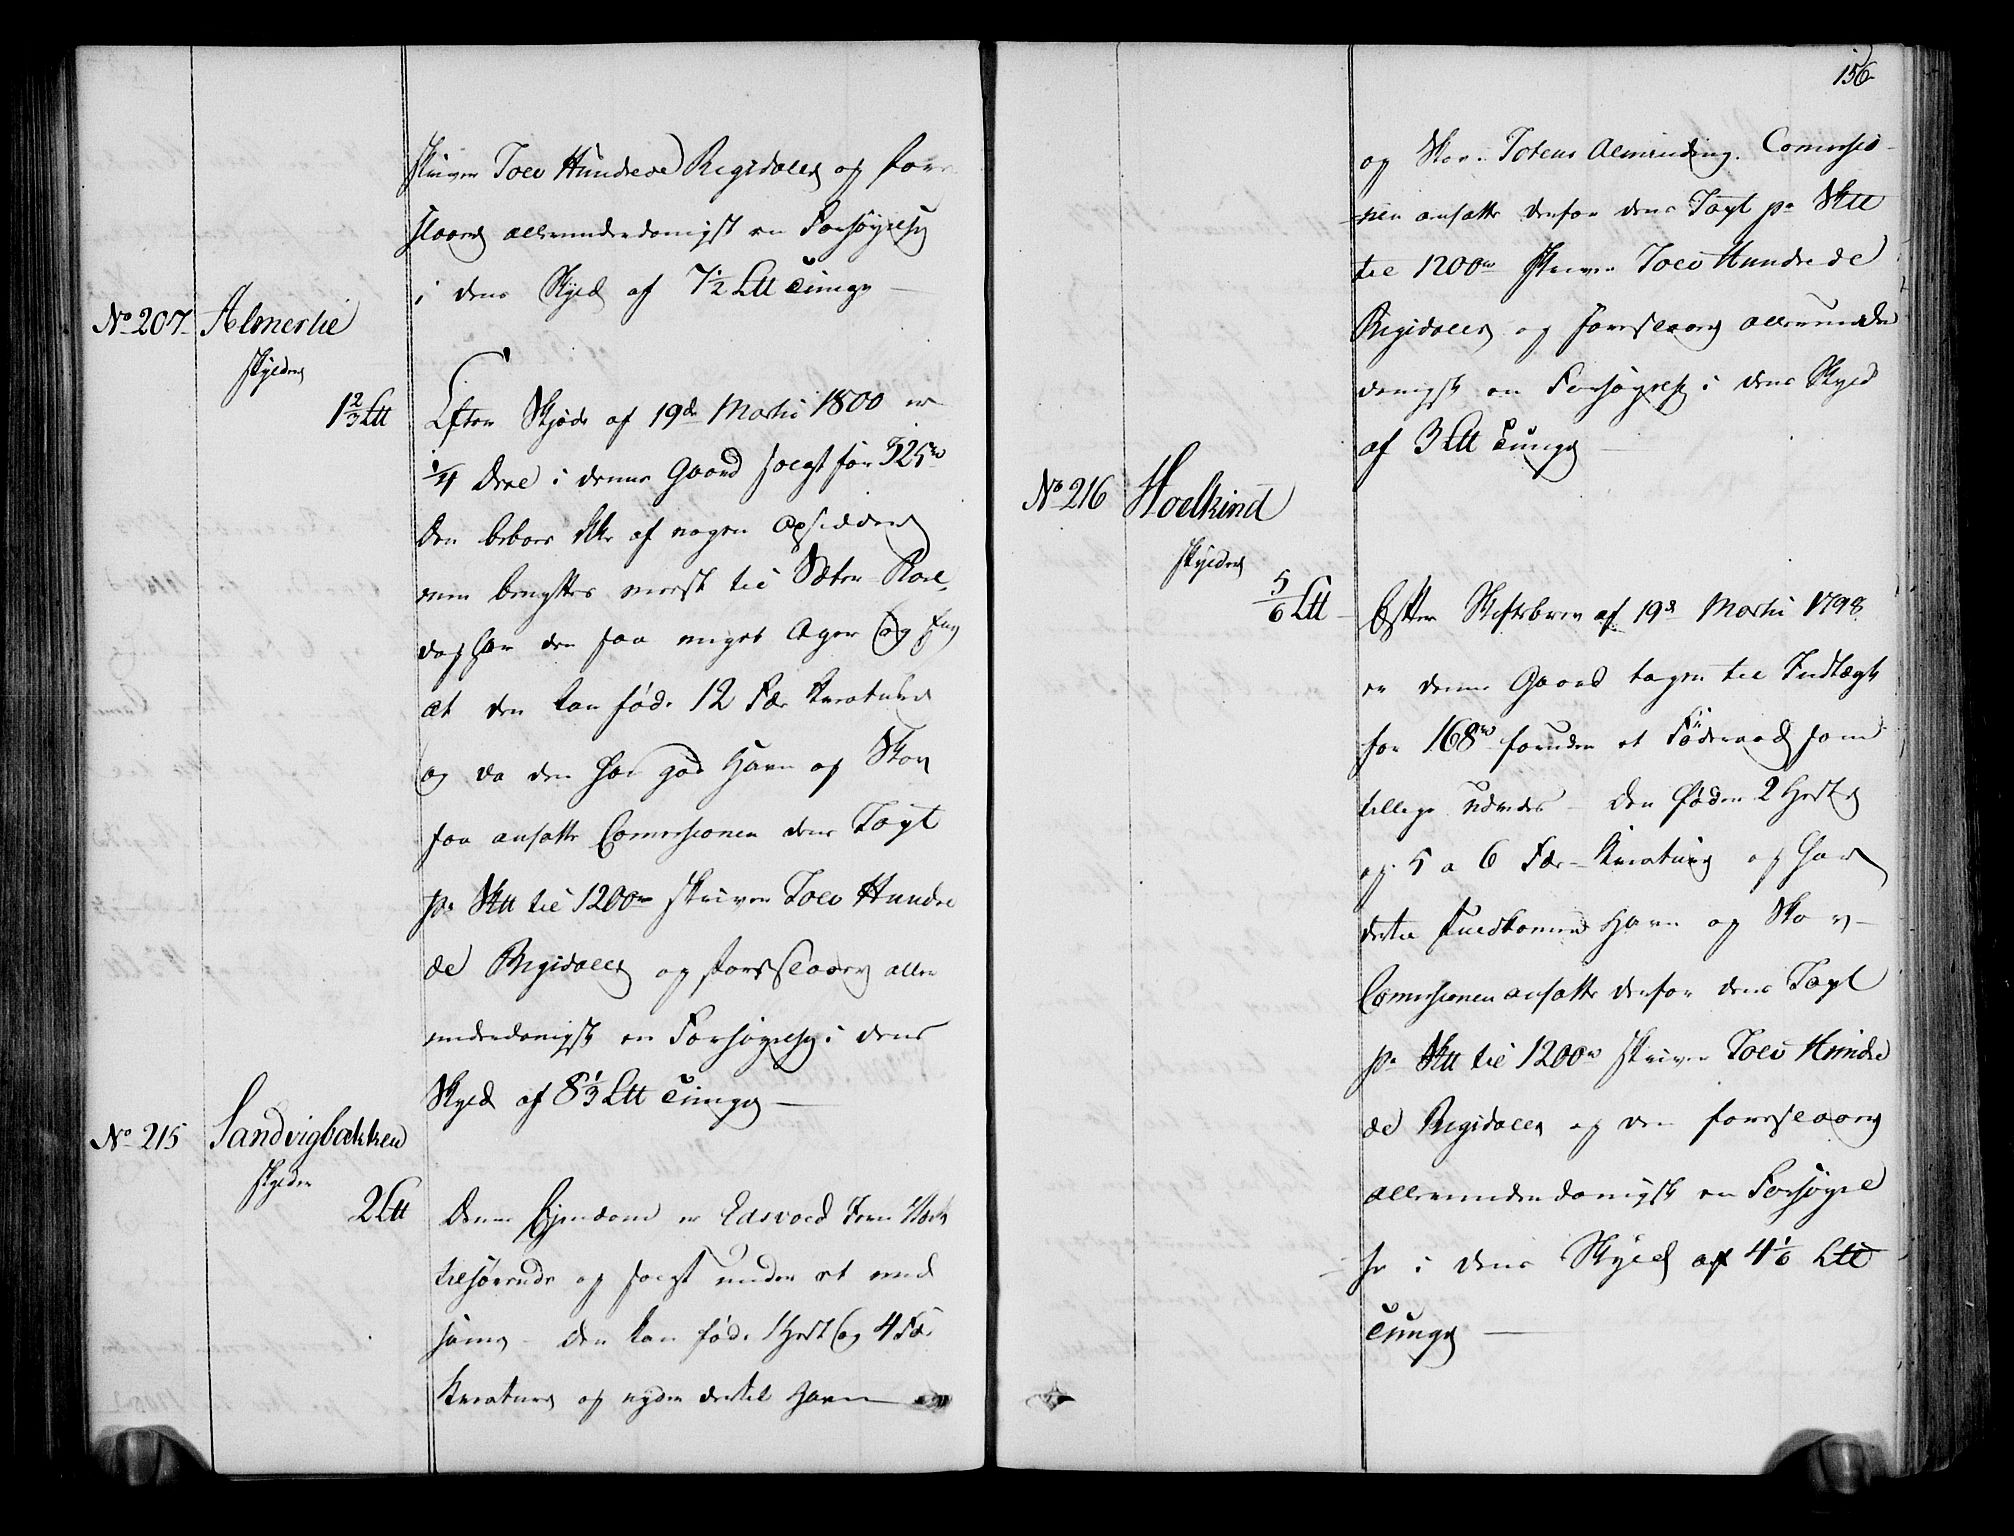 skriver Tolv Hundrede Rigsdaler og fore
slaaer allerunderdanigst en Forhøyelse
i dens Skyld af 7 1/2 Ltt Tunge —
No 207. Almerlie
skylder
1 2/3 Ltt
Efter Skjøde af 19de Martii 1800 er
1/4 Deel i denne Gaard solgt for 325 rd
Den beboes ikke af nogen Opsidder
men benyttes meest til Sæter Røel,
dog har den saa meget Ager og Eng
at den kan føde 12 Fæe Kreaturer
og da den har god Havn og Skov
saa ansatte Comissionen dens Taxt
pr Sktt til 1200 rd skriver Tolv Hundre
de Rigsdaler og foreslaaer aller
underdanigst en Forhøyelse i dens
Skyld af 8 1/3 Ltt Tunge —
No 215 Sandvigbakken
skylder
2 Ltt
Denne Ejendom er Edsvold Jern Værk
tilhørende og solgt under et med
samme — Den kan føde 1 Hest og 4 Fæe
Kreaturer og nyder dertil Havn
156
og Skov i Totens Alminding. Comissio-
nen ansatte derfor dens Taxt pr Sktt
til 1200 rd skriver Tolv Hundrede
Rigsdaler og foreslaaer allerunder
danigst en Forhøyelse i dens Skyld
af 3 Ltt Tunge —
No 216 Hoelkind
skylder
5/6 Ltt
Efter Skiftebrev af 19de Martii 1798
er denne Gaard tagen til Indtægt
for 168 rd foruden et Føderaad som
tillige udredes — Den føder 2 Heste
og 5 a 6 Fæe-Kreaturer og har
dertil fuldkommen Havn og Skov —
Comissionen ansatte derfor dens Taxt
pr Sktt til 1200 rd skriver Tolv Hundre
de Rigsdaler og den foreslaaer
allerunderdanigst en Forhøyel
se i dens Skyld af 4 1/6 Ltt
Tunge —